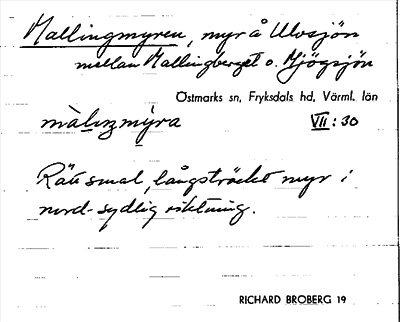 Mallingmyren, myr å Ulvsjön
mellan Mallingberget o. Mjögsjön
Östmarks sn, Fryksdals hd, Värml. län
màlıŋmỳra VII : 30
Rätt smal, långsträckt myr i
nord-sydlig riktning.
RICHARD BROBERG 19